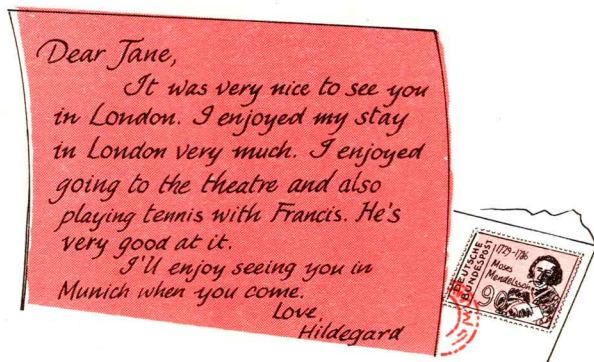 Dear Jane,
It was very nice to see you
in London. I enjoyed my stay
in London very much. I enjoyed
going to the theatre and also
playing tennis with Francis. He's
very good at it.
I'll enjoy seeing you in
Munich when you come.
Love,
Hildegard
DEUTSCHE
BUNDESPOST
1729-1786
Moses
Mendelssohn
90